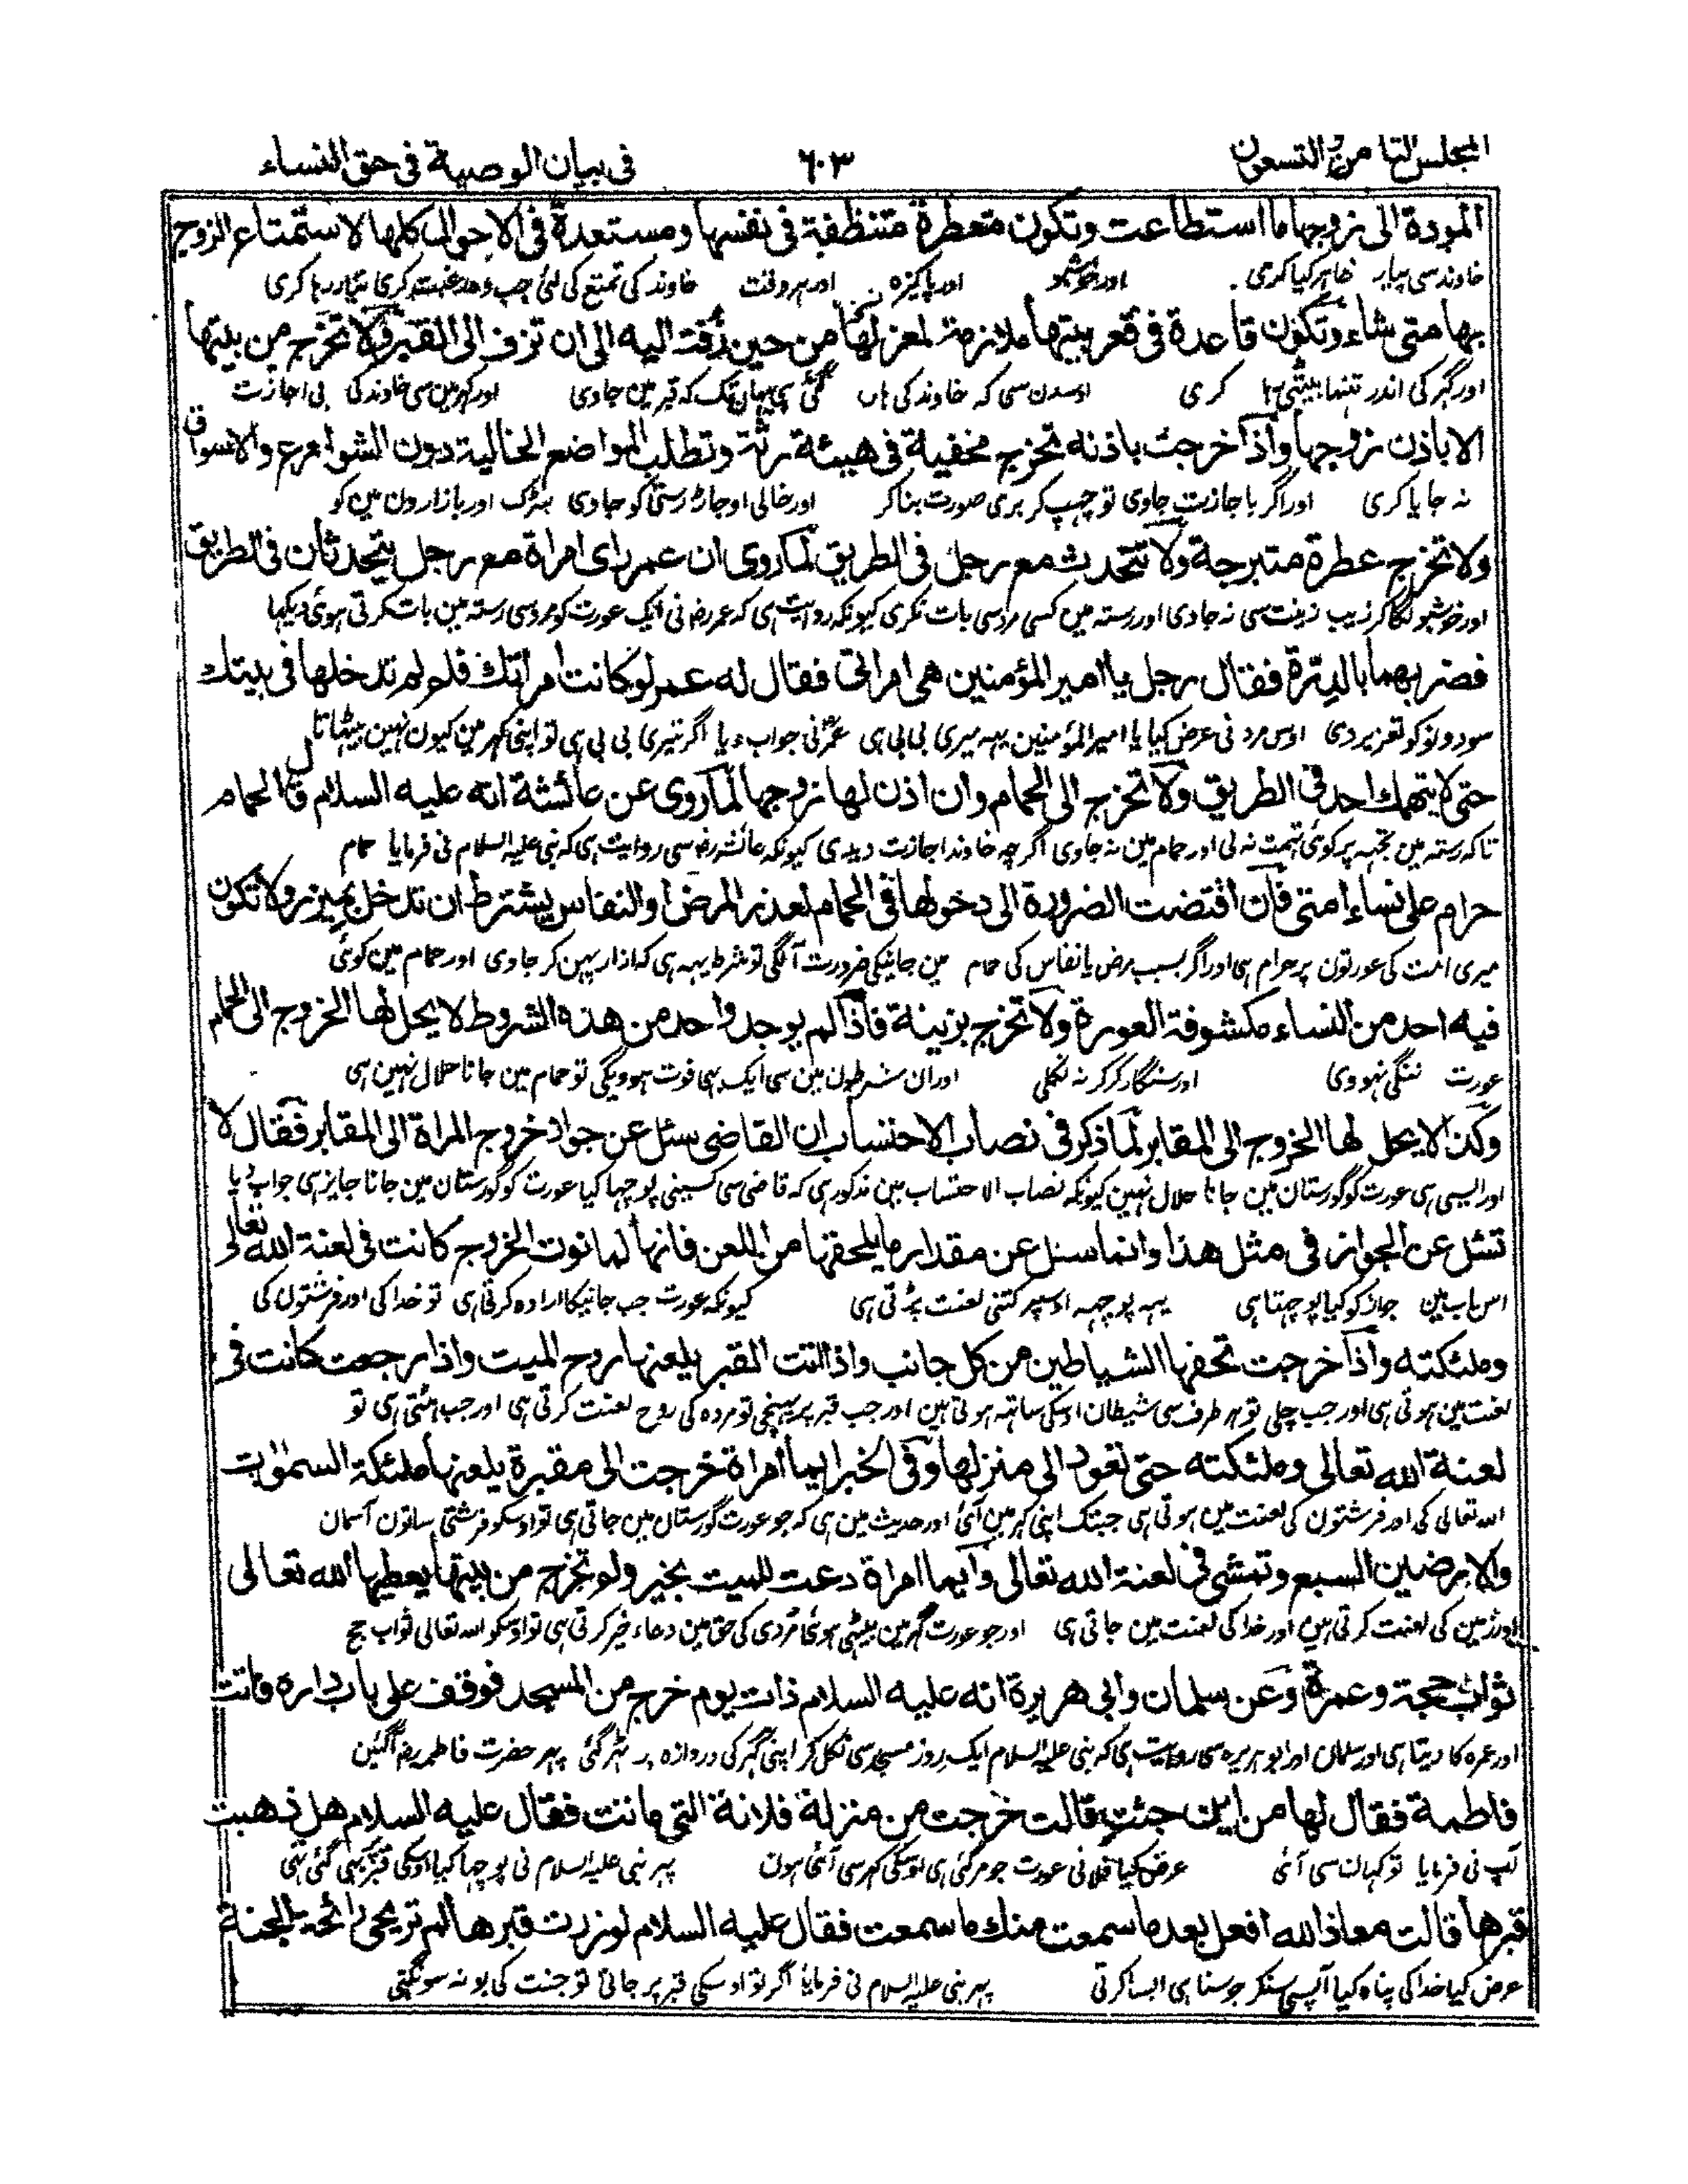 المجلس الثامن والتسعون ٦٠٣ فى بيان الوصية فى حق النساء
المودة الى زوجها ما استطاعت وتكون متعطرة متنظفة فى نفسها ومستعدة فى الاحوال كلها لاستمتاع الزوج
خاوند سی پیار ظاہر کیا کری اور خوشبو اور پاکیزہ اور ہر وقت خاوند کی تمتع کی لئی جب وہ رغبت کری تیار رہا کری
بها متى شاء وتكون قاعدة فى قعر بيتها ملازمة لمغزلها من حين زفت اليه الى ان تزف الى القبر ولا تخرج من بيتها
اور گہر کی اندر تنہا بیٹھی رہا کری اوسدن سی کہ خاوند کی ہاں گئی ہی یہانتک کہ قبر مین جاوی اور گہر مین سی خاوند کی بی اجازت
الا باذن زوجها واذا خرجت باذنه تخرج مخفية فى هيئة رثة وتطلب المواضع الخالية دون الشوارع والاسواق
نہ جایا کری اور اگر با جازت جاوی تو چہپ کر بری صورت بنا کر اور خالی اوجاڑ رستی کو جاوی سڑک اور بازارون مین کو
ولا تخرج عطرة متبرجة ولا تتحدث مع رجل فى الطريق لما روى ان عمر راى امراة مع رجل يتحدثان فى الطريق
اور خوشبو لگا کر زیب زینت سی نہ جاوی اور رستہ میں کسی مرد سی بات نکری کیونکہ روایت ہی کہ عمر رض نی ایک عورت کو مرد سی رستہ مین بات کرتی ہوئی دیکہا
فضربهما بالدرة فقال رجل يا امير المؤمنين هى امراتى فقال له عمر لو كانت امراتك فلم لم تدخلها فى بيتك
سو دونو کو تعزیر دی اوس مرد نی عرض کیا یا امیر المؤمنین یہہ میری بی بی ہی عمر نی جواب دیا اگر تیری بی بی ہی تو اپنی گہر مین کیون نہین بیٹہاتا
حتى لا يتهمك احد فى الطريق ولا تخرج الى الحمام وان اذن لها زوجها لما روى عن عائشة انه عليه السلام قال الحمام
تا کہ رستہ مین تجہہ پر کوئی تہمت نہ لی اور حمام مین نہ جاوی اگر چہ خاوند اجازت دیدی کیونکہ عائشہ رض سی روایت ہی کہ نبی علیہ السلام نی فرمایا حمام
حرام على نساء امتى فان اقتضت الضرورة الى دخولها فى الحمام لعذر المرض او النفاس يشترط ان تدخل بميزر ولا تكون
میری امت کی عورتون پر حرام ہی اور اگر بسبب مرض یا نفاس کی حمام مین جانیکی ضرورت آ لگی تو شرط یہہ ہی کہ ازار پہن کر جاوی اور حمام مین کوئی
فيه احد من النساء مكشوفة العورة ولا تخرج بزينة فاذا لم يوجد واحد من هذه الشروط لا يحل لها الخروج الى الحمام
عورت ننگی نہووی اور سنگار کر کر نہ نکلی اور ان شرطون مین سی ایک بہی فوت ہوویگی تو حمام مین جانا حلال نہین ہی
وكذا لا يحل لها الخروج الى المقابر لما ذكر فى نصاب الاحتساب ان القاضى سئل عن جواز خروج المراة الى المقابر فقال لا
اور ایسی ہی عورت کو گورستان مین جانا حلال نہین کیونکہ نصاب الاحتساب مین مذکور ہی کہ قاضی سی کسینی پوچہا کیا عورت کو گورستان مین جانا جایز ہی جواب دیا
تسئل عن الجواز فى مثل هذا وانما سئل عن مقدار ما يلحقها من اللعن فانها لما نوت الخروج كانت فى لعنة الله تعالى
اس باب مین جواز کو کیا پوچہتا ہی یہہ پوچہہ اوسپر کتنی لعنت پڑتی ہی کیونکہ عورت جب جانیکا ارادہ کرتی ہی تو خدا کی اور فرشتوں کی
وملئكته واذا خرجت تحفها الشياطين من كل جانب واذا اتت القبر يلعنها روح الميت واذا رجعت كانت فى
لعنت مین ہوتی ہی اور جب چلی تو ہر طرف سی شیطان اوسکی ساتہہ ہوتی ہین اور جب قبر پر پہنچی تو مردہ کی روح لعنت کرتی ہی اور جب ہٹتی ہی تو
لعنة الله تعالى وملئكته حتى تعود الى منزلها وفى الخبر ايما امراة خرجت الى مقبرة يلعنها ملئكة السموات
اللہ تعالی کی اور فرشتون کی لعنت مین ہوتی ہی جبتک اپنی گہر مین آئی اور حدیث مین ہی کہ جو عورت گورستان مین جاتی ہی تو اوسکو فرشتی ساتون آسمان
والارضين السبع وتمشى فى لعنة الله تعالى وايما امراة دعت للميت بخير ولم تخرج من بيتها يعطيها الله تعالى
اور زمین کی لعنت کرتی ہین اور خدا کی لعنت مین جاتی ہی اور جو عورت گہر مین بیٹہی ہوئی مردی کی حق مین دعاء خیر کرتی ہی تو اوسکو اللہ تعالی ثواب حج
ثواب حجة وعمرة وعن سلمان وابى هريرة انه عليه السلام ذات يوم خرج من المسجد فوقف على باب داره فاتت
اور عمرہ کا دیتا ہی اور سلمان اور ابو ہریرہ سی روایت ہی کہ نبی علیہ السلام ایک روز مسجد سی نکل کر اپنی گہر کی دروازہ پر ٹہر گئی پہر حضرت فاطمہ رض آگئین
فاطمة فقال لها من اين جئت قالت خرجت من منزلة فلانة التى ماتت فقال عليه السلام هل ذهبت
آپ نی فرمایا تو کہان سی آئی عرض کیا فلانی عورت جو مر گئی ہی اوسکی گہر سی آئی ہون پہر نبی علیہ السلام نی پوچہا کیا اوسکی قبر پر بہی گئی تہی
قبرها قالت معاذ الله افعل بعد ما سمعت منك ما سمعت فقال عليه السلام لو زرت قبرها لم تريحى رائحة الجنة
عرض کیا خدا کی پناہ کیا آپسی سنکر جو سنا ہی ایسا کرتی پہر نبی علیہ السلام نی فرمایا اگر تو اوسکی قبر پر جاتی تو جنت کی بو نہ سونگہتی